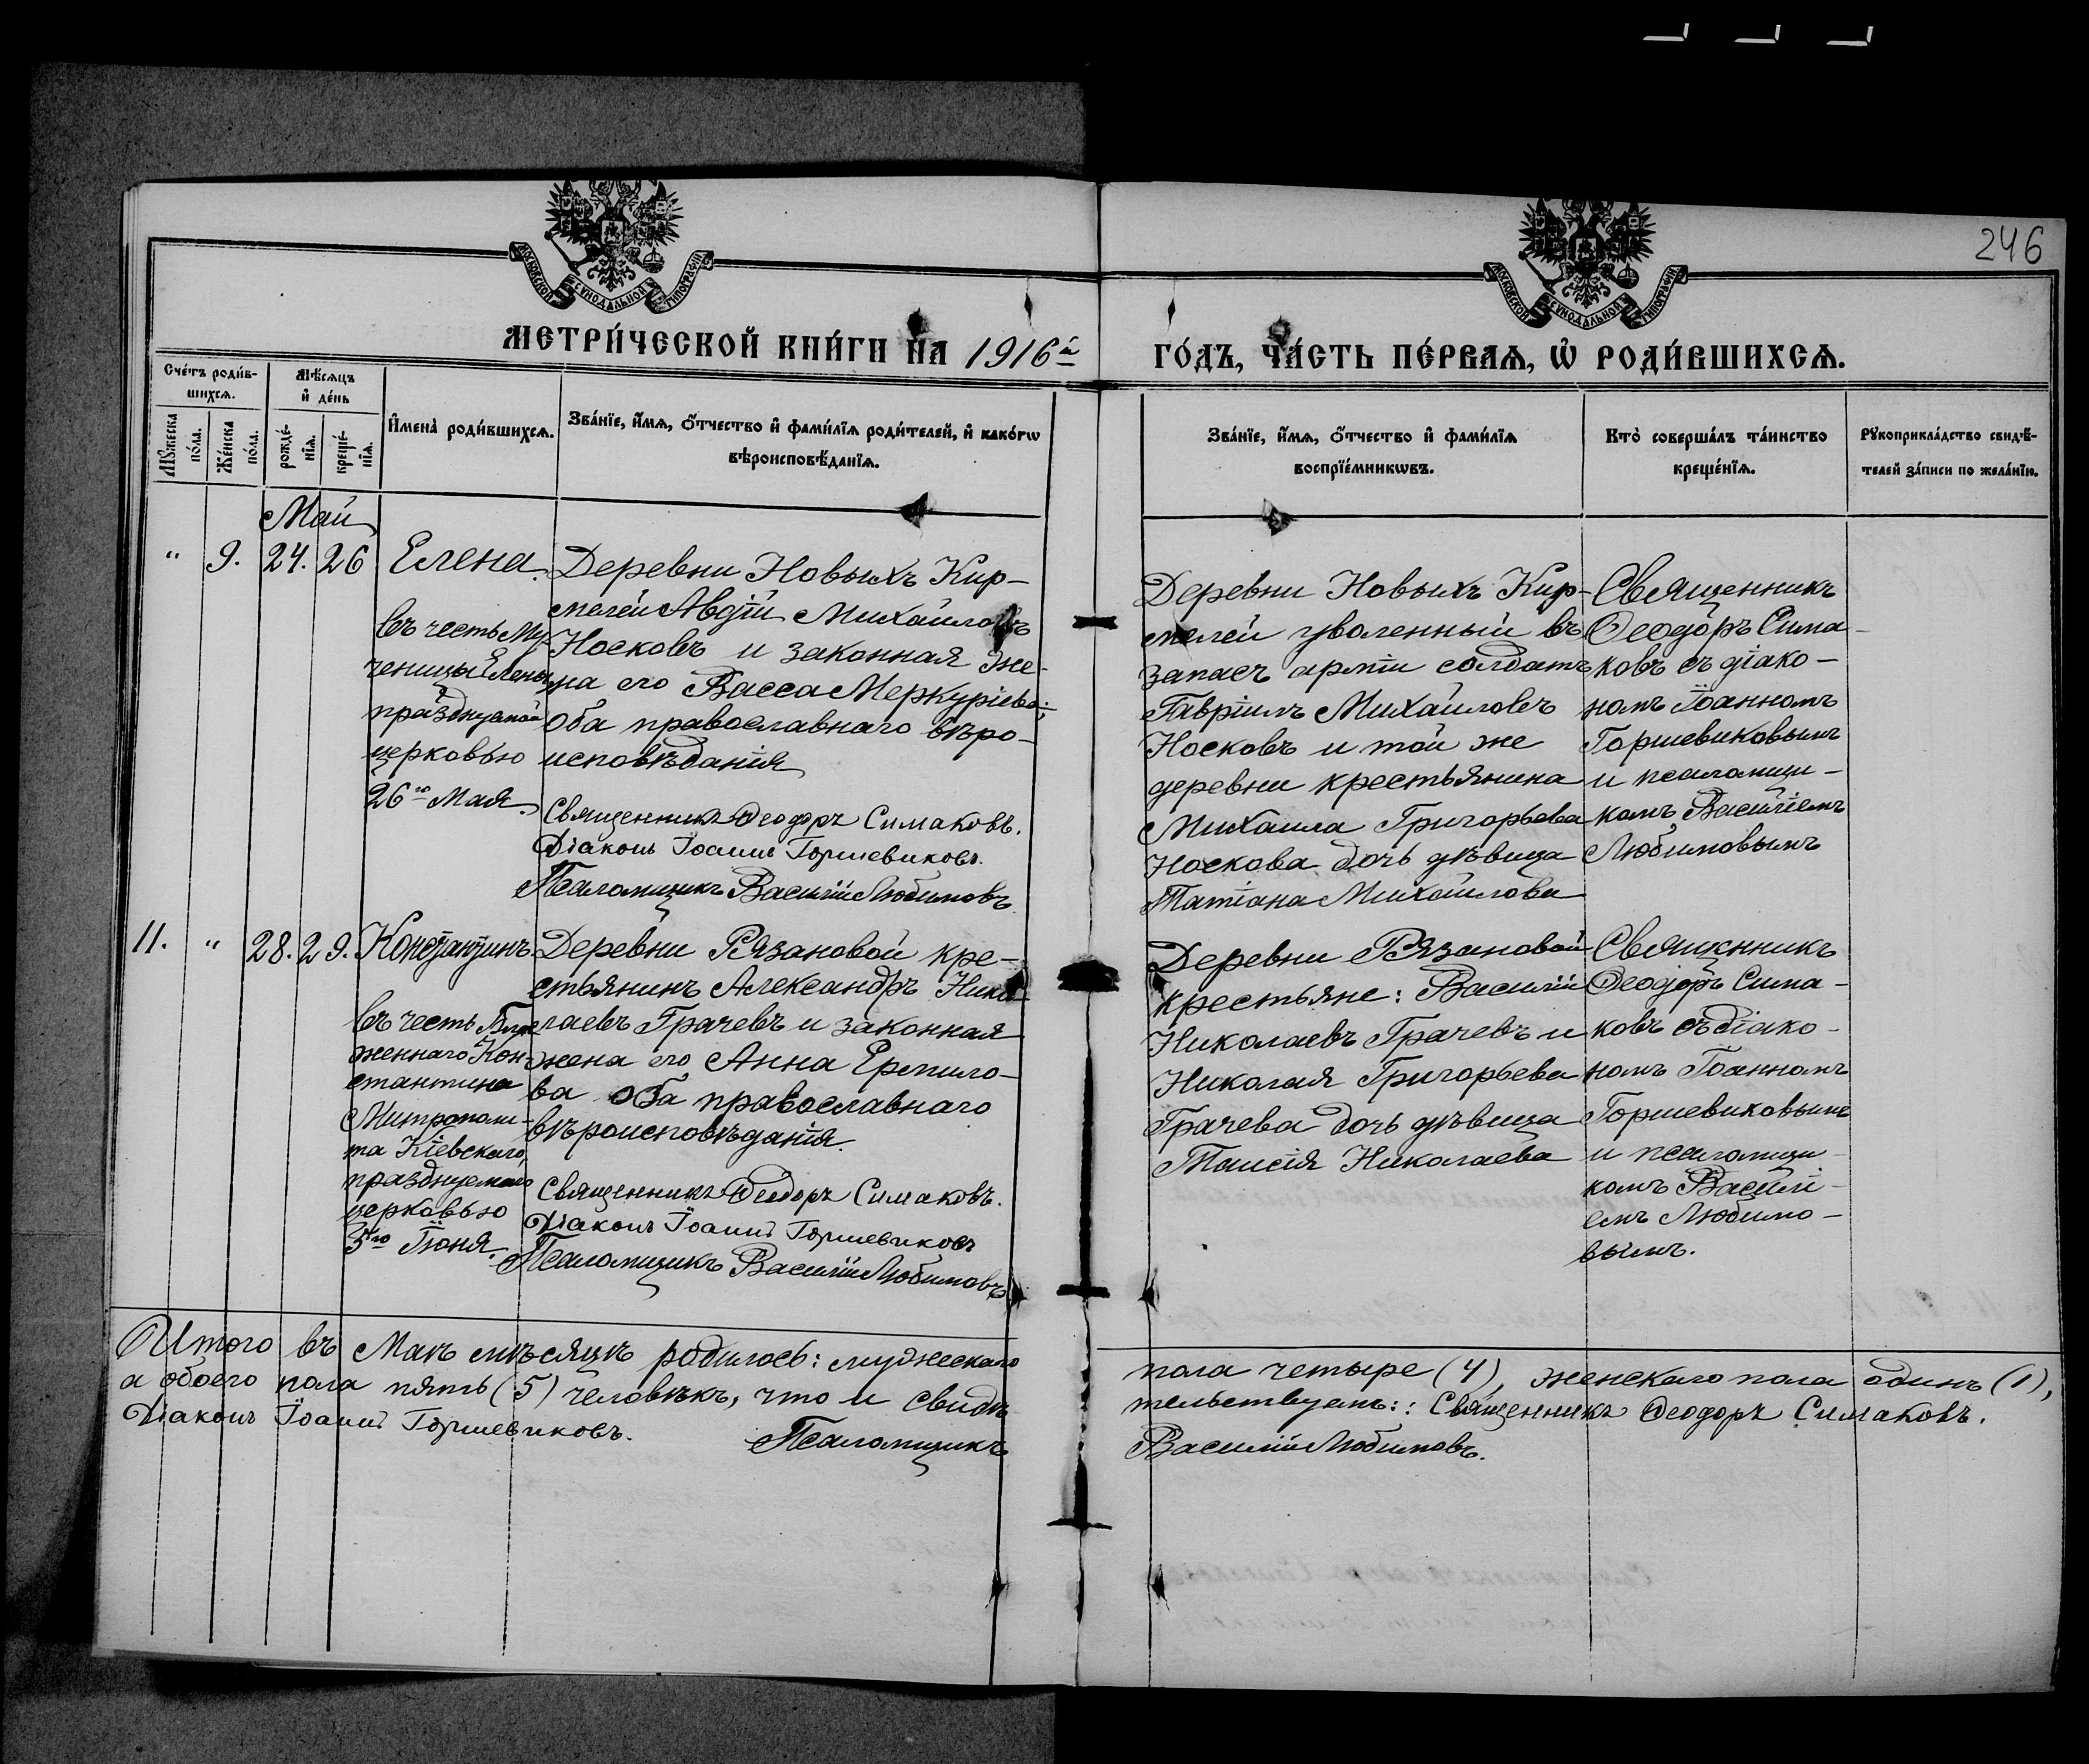 246
МОСКОВСКОЙ СѴНОДАЛЬНОЙ ТИПОГРАФІИ
МОСКОВСКОЙ СѴНОДАЛЬНОЙ ТИПОГРАФІИ
МЕТРИ́ЧЕСКОЙ КНИ́ГИ НА 1916й
ГО́ДЪ, ЧА́СТЬ ПЕ́РВАѦ, Ѡ РОДИ́ВШИХСѦ.
Сче́тъ роди́в-
шихсѧ.
Мѣ́сѧцъ
и҆ де́нь
Мꙋ́жеска
по́ла.
Же́нска
по́ла.
рожде́-
нїѧ.
креще́-
нїѧ.
И҆мена̀ роди́вшихсѧ.
Зва́нїе, и҆́мѧ, ѻ҆́тчество и҆ фами́лїѧ роди́телей, и҆ како́гѡ
вѣроисповѣ́данїѧ.
Зва́нїе, и҆́мѧ, ѻ҆́тчество и҆ фами́лїѧ
воспрїе́мникѡвъ.
Кто̀ соверша́лъ та́инство
креще́нїѧ.
Рꙋкоприкла́дство свидѣ́-
телей за́писи по жела́нїю.
Май
" 9. 24. 26 Елена.
въ честь Му-
ченицы Елены,
празднуемой
церковью
26го Мая.
Деревни Новыхъ Кир-
мелей Авдій Михайловъ
Носковъ и законная же-
на его Васса Меркуріева:
оба православнаго вѣро-
исповѣданія
Священникъ Ѳеодоръ Симаковъ.
Діаконъ Іоаннъ Горшевиковъ.
Псаломщикъ Василій Любимовъ.
Деревни Новыхъ Кир-
мелей уволенный въ
запасъ арміи солдатъ
Гавріилъ Михайловъ
Носковъ и той же
деревни крестьянина
Михаила Григорьева
Носкова дочь дѣвица
Татіана Михайлова
Священникъ
Ѳеодоръ Сима-
ковъ съ діако-
номъ Іоанномъ
Горшевиковымъ
и псаломщи-
комъ Василіемъ
Любимовымъ
11. " 28. 29. Константинъ.
въ честь Бла-
женнаго Кон-
стантина
Митрополи-
та Кіевскаго,
празднуемаго
церковью
5го Іюня.
Деревни Рязановой кре-
стьянинъ Александръ Нико-
лаевъ Грачевъ и законная
жена его Анна Ермило-
ва оба православнаго
вѣроисповѣданія.
Священникъ Ѳеодоръ Симаковъ.
Діаконъ Іоаннъ Горшевиковъ
Псаломщикъ Василій Любимовъ
Деревни Рязановой
крестьяне: Василій
Николаевъ Грачевъ и
Николая Григорьева
Грачева дочь дѣвица
Таисія Николаева
Священникъ
Ѳеодоръ Сима-
ковъ съ діако-
номъ Іоанномъ
Горшевиковымъ
и псаломщи-
комъ Василі-
емъ Любимо-
вымъ.
Итого въ Маѣ мѣсяцѣ родилось: мужескаго пола четыре (4), женскаго пола одинъ (1),
а обоего пола пять (5) человѣкъ, что и свидѣтельствуемъ:: Священникъ Ѳеодоръ Симаковъ.
Діаконъ Іоаннъ Горшевиковъ. Псаломщикъ Василій Любимовъ.